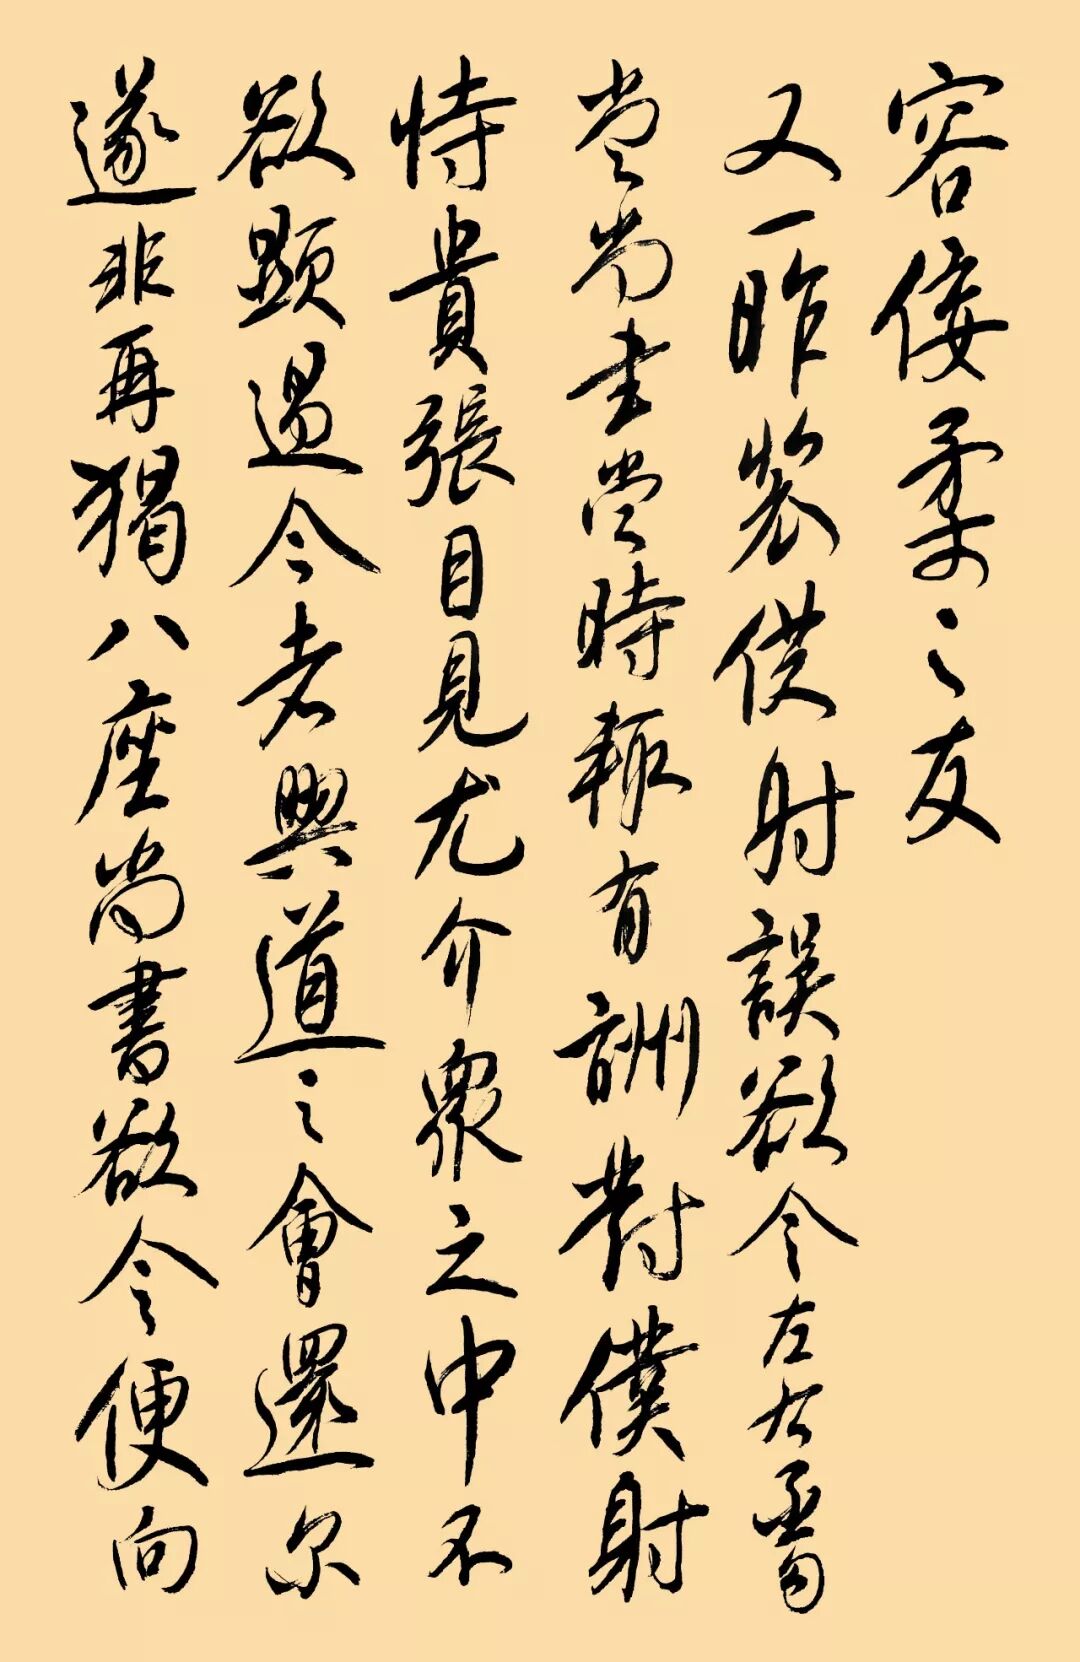 容佞柔之友
又一昨裴僕射誤欲令左右丞勾
當尚書當時輒有詶對僕射
恃貴張目見尤介衆之中不
欲顯過今者興道之會還尔
遂非再猲八座尚書欲令便向